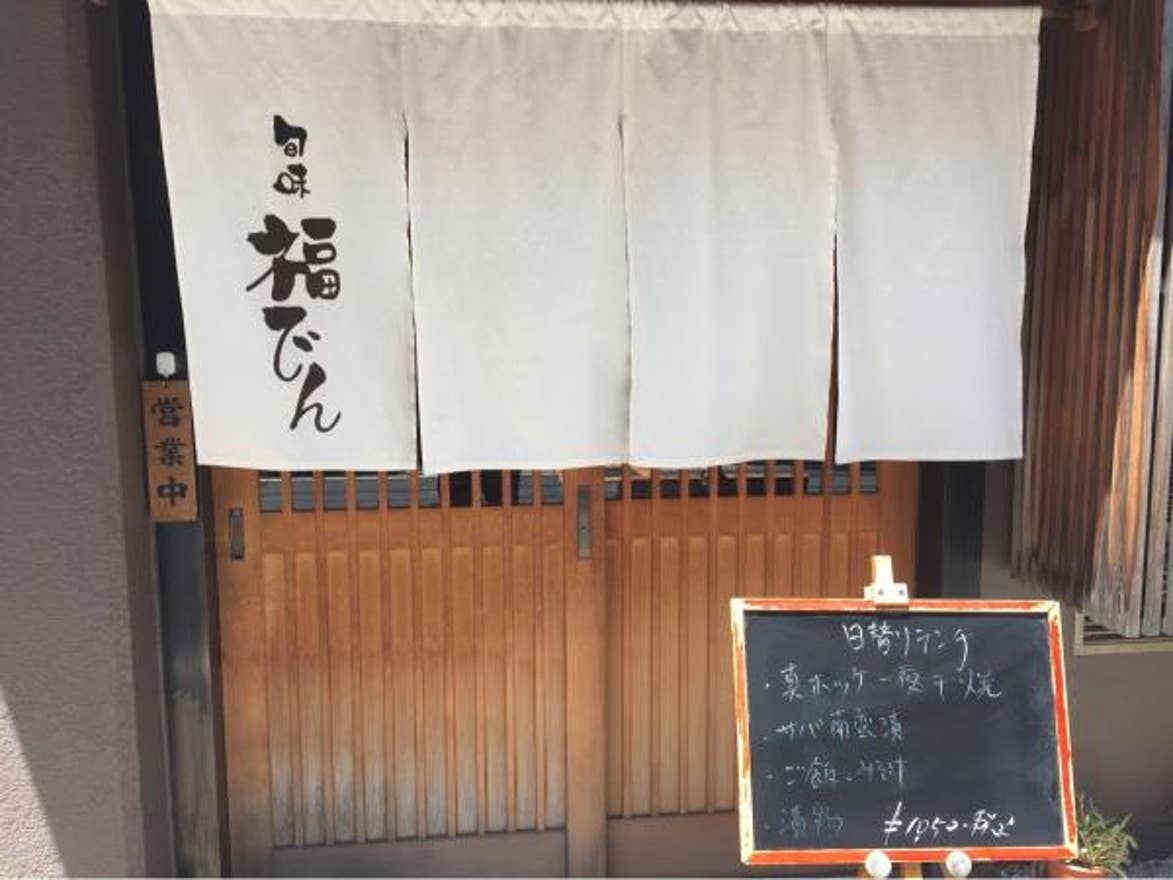 旬味
福でん
営業中
日替りランチ
・真ホッケ一夜干焼
・サバ南蛮漬
・ご飯・みそ汁
・漬物 ¥1,050・税込